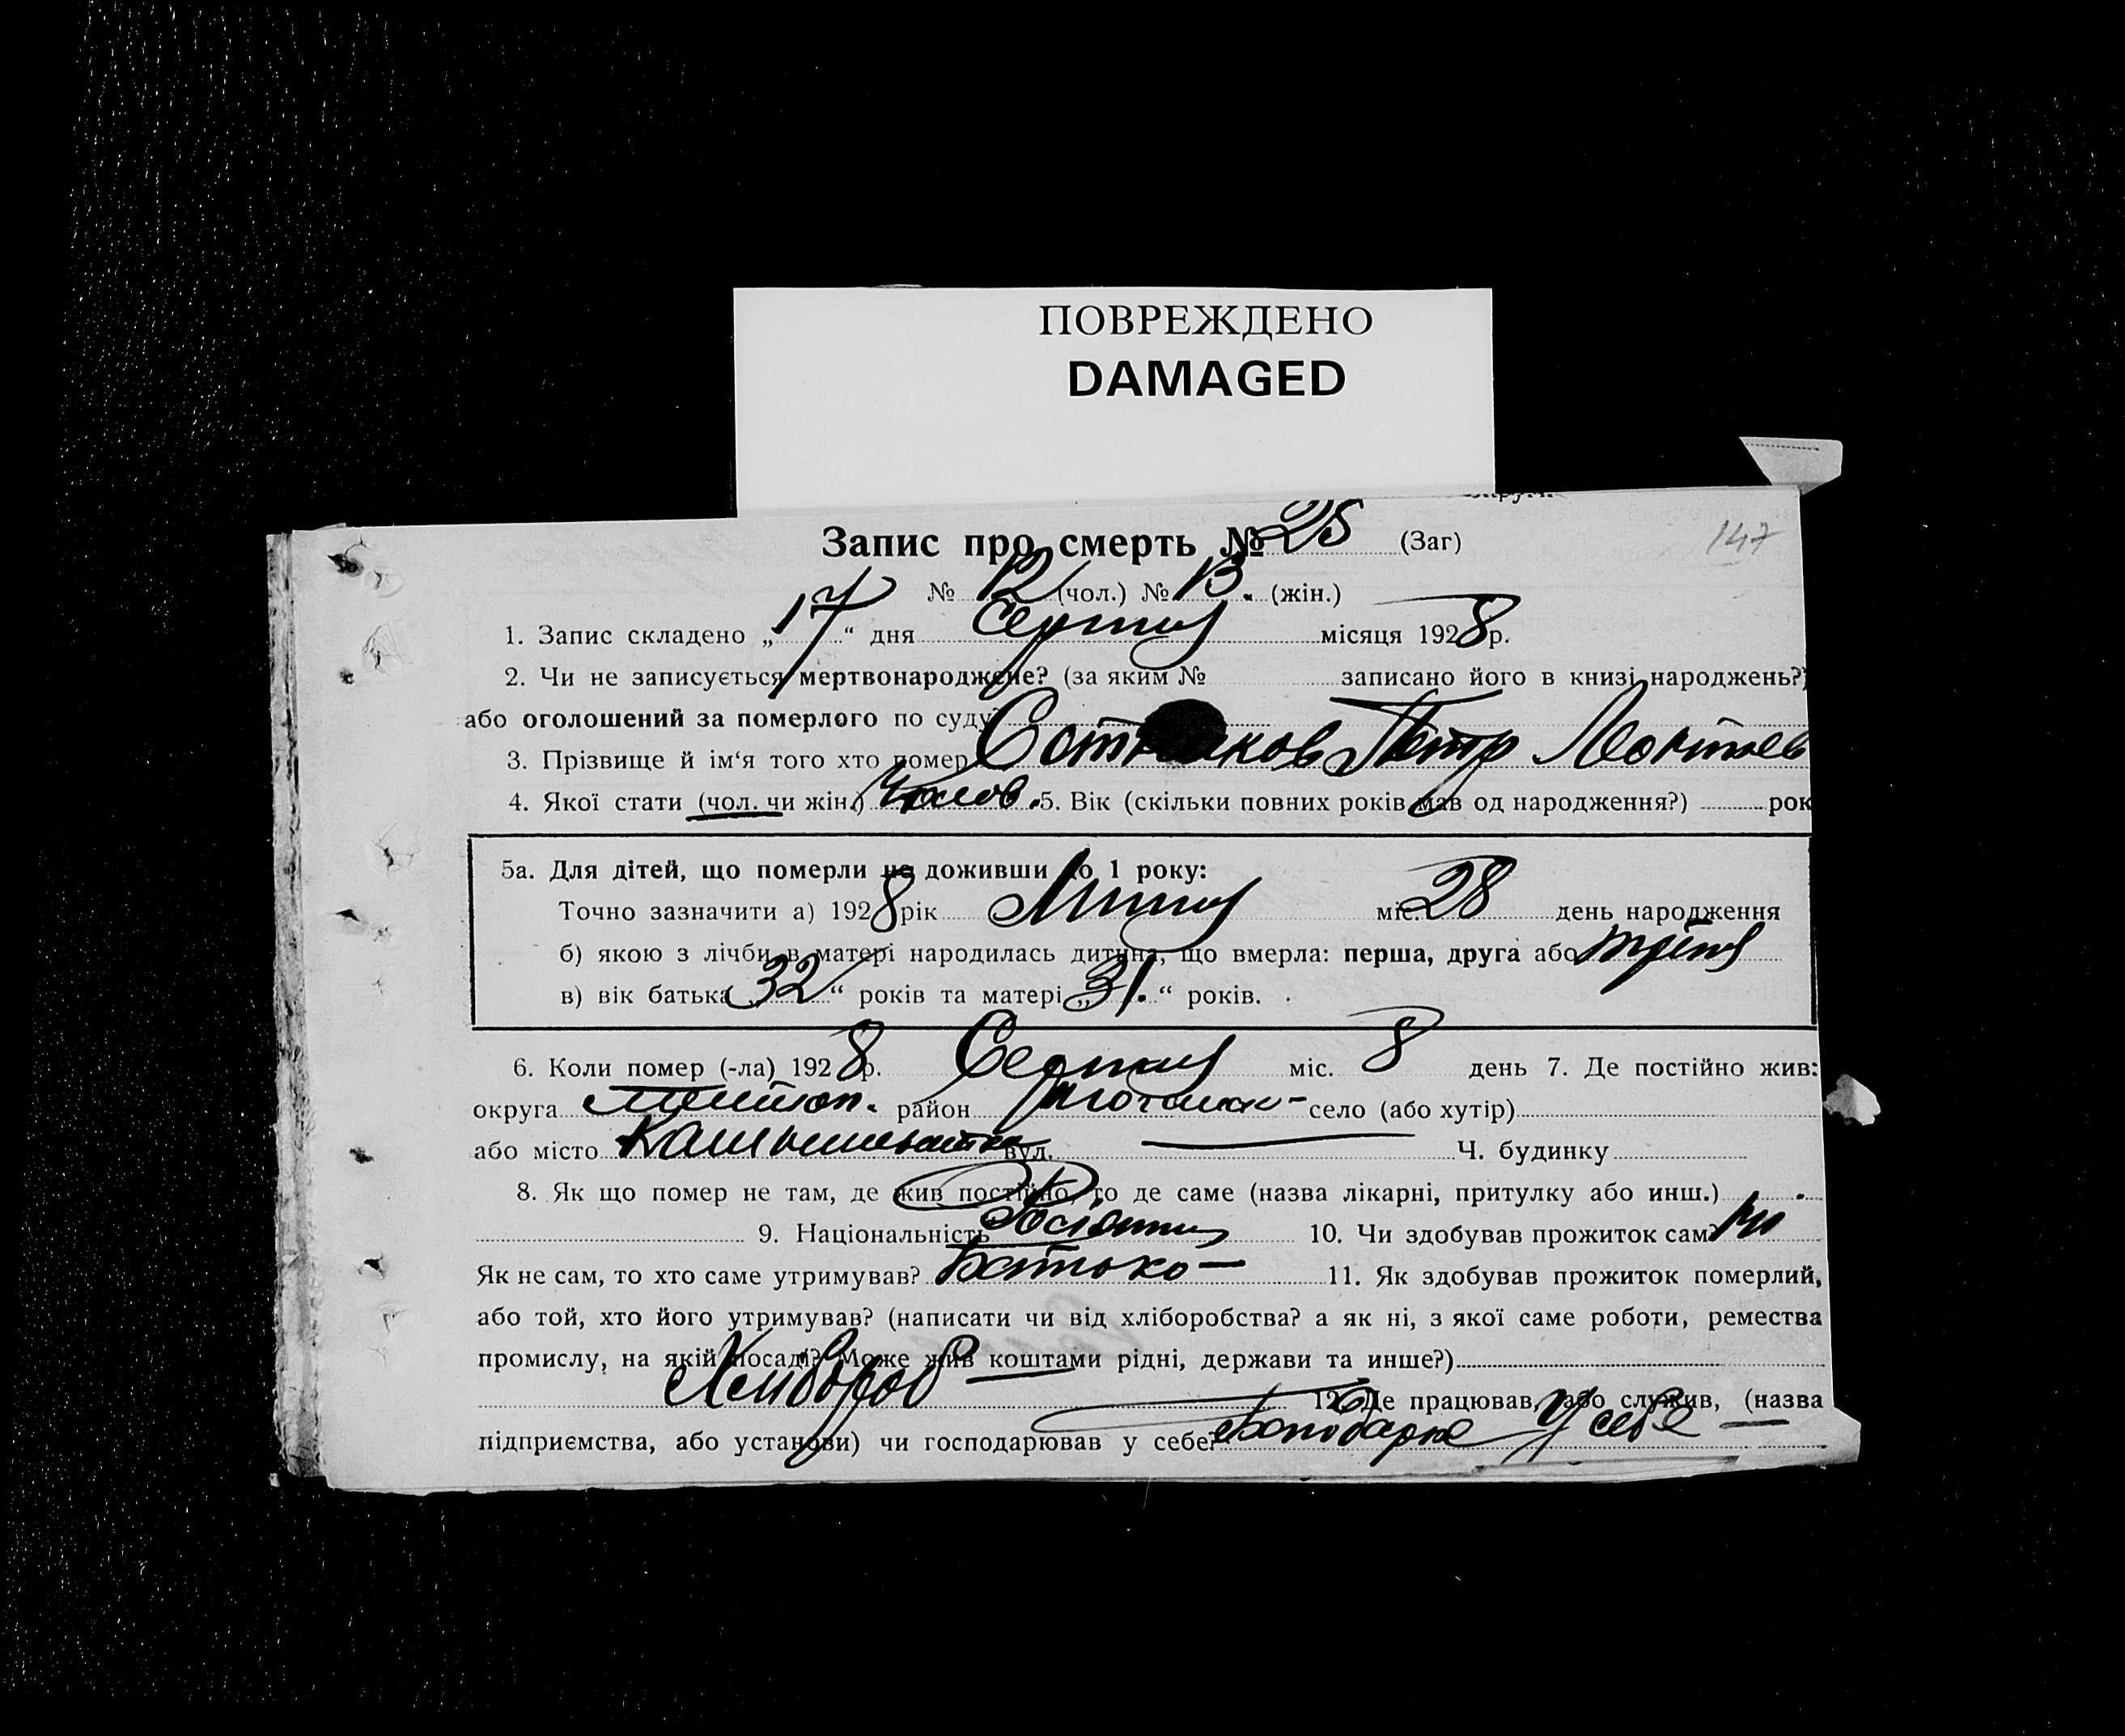 ПОВРЕЖДЕНО
DAMAGED
147
Запис про смерть № 25 (Заг)
№ 12 (чол.) № 13. (жін.)
1. Запис складено „17“ дня Серпня місяця 1928 р.
2. Чи не записується мертвонароджене? (за яким № записано його в книзі народжень?)
або оголошений за померлого по суду?
3. Прізвище й ім‘я того хто помер Петр Леонтьев
4. Якої стати (чол. чи жін.) Чолов. 5. Вік (скільки повних років мав од народження?) рок
5а. Для дітей, що померли не доживши до 1 року:
Точно зазначити а) 1928 рік Липня міс. 28 день народження
б) якою з лічби в матері народилась дитина, що вмерла: перша, друга або третя
в) вік батька „32“ років та матері „31.“ років.
6. Коли помер (-ла) 1928 р. Серпня міс. 8 день 7. Де постійно жив:
округа район село (або хутір)
або місто вул. — Ч. будинку
8. Як що помер не там, де жив постійно, то де саме (назва лікарні, притулку або инш.)
9. Національність 10. Чи здобував прожиток сам? ні
Як не сам, то хто саме утримував? Батько — 11. Як здобував прожиток померлий,
або той, хто його утримував? (написати чи від хліборобства? а як ні, з якої саме роботи, ремества
промислу, на якій посаді? Може жив коштами рідні, держави та инше?)
Хлібороб
12. Де працював, або служив, (назва
підприємства, або установи) чи господарював у себе? у себе —